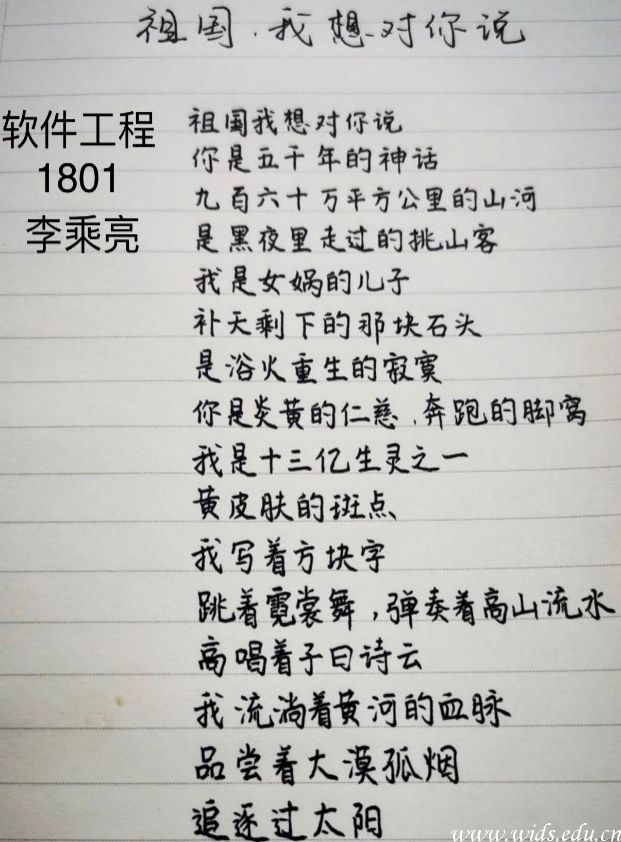 祖国,我想对你说
软件工程
1801
李乘亮
祖国我想对你说
你是五千年的神话
九百六十万平方公里的山河
是黑夜里走过的挑山客
我是女娲的儿子
补天剩下的那块石头
是浴火重生的寂寞
你是炎黄的仁慈,奔跑的脚窝
我是十三亿生灵之一
黄皮肤的斑点
我写着方块字
跳着霓裳舞,弹奏着高山流水
高唱着子曰诗云
我流淌着黄河的血脉
品尝着大漠孤烟
追逐过太阳
www.wids.edu.cn